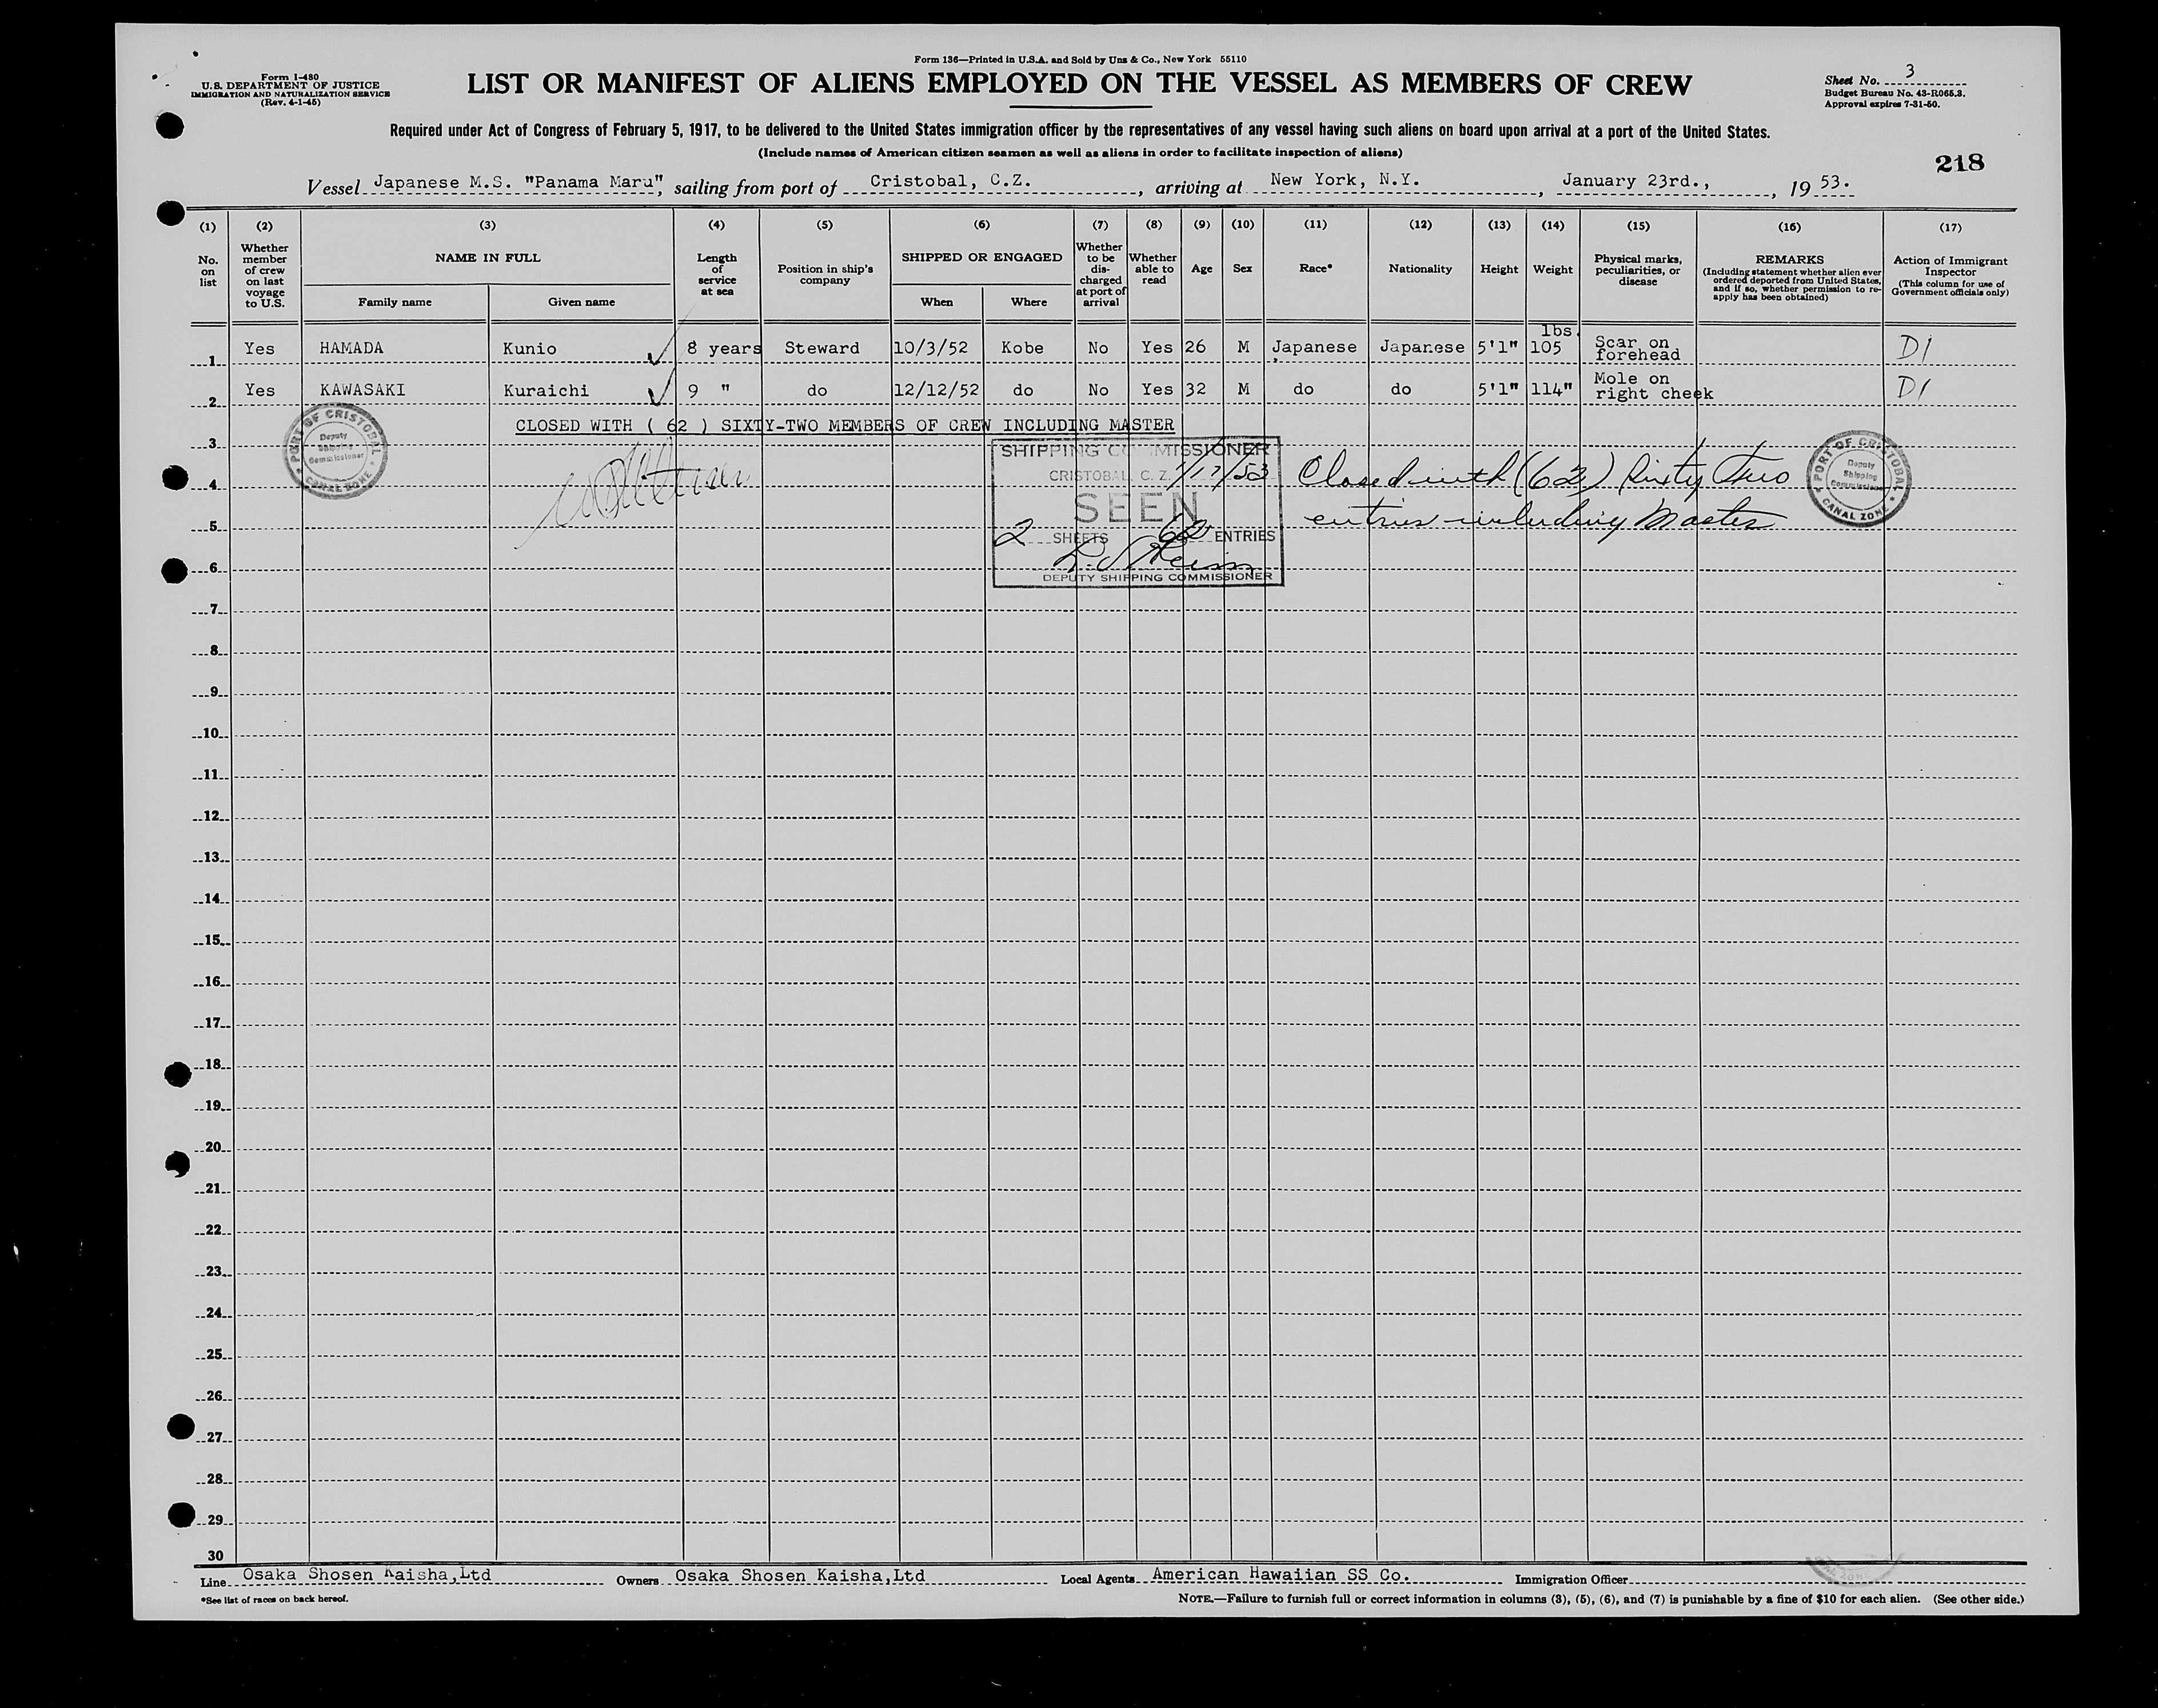 Form 136—Printed in U.S.A. and Sold by Unz & Co., New York 55110
Form I-480
U.S. DEPARTMENT OF JUSTICE
IMMIGRATION AND NATURALIZATION SERVICE
(Rev. 4-1-45)
LIST OR MANIFEST OF ALIENS EMPLOYED ON THE VESSEL AS MEMBERS OF CREW
Sheet No. 3
Budget Bureau No. 43-R065.3.
Approval expires 7-31-50.
Required under Act of Congress of February 5, 1917, to be delivered to the United States immigration officer by the representatives of any vessel having such aliens on board upon arrival at a port of the United States.
(Include names of American citizen seamen as well as aliens in order to facilitate inspection of aliens)
218
Vessel Japanese M.S. "Panama Maru", sailing from port of Cristobal, C.Z., arriving at New York, N.Y., January 23rd., 19 53.
(1) (2) (3) (4) (5) (6) (7) (8) (9) (10) (11) (12) (13) (14) (15) (16) (17)
No. on list
Whether member of crew on last voyage to U.S.
NAME IN FULL
Family name
Given name
Length of service at sea
Position in ship's company
SHIPPED OR ENGAGED
When
Where
Whether to be discharged at port of arrival
Whether able to read
Age
Sex
Race*
Nationality
Height
Weight
Physical marks, peculiarities, or disease
REMARKS
(Including statement whether alien ever ordered deported from United States, and if so, whether permission to re-apply has been obtained)
Action of Immigrant Inspector
(This column for use of Government officials only)
1 Yes HAMADA Kunio 8 years Steward 10/3/52 Kobe No Yes 26 M Japanese Japanese 5'1" 105 lbs. Scar on forehead D1
2 Yes KAWASAKI Kuraichi 9 " do 12/12/52 do No Yes 32 M do do 5'1" 114" Mole on right cheek D1
CLOSED WITH ( 62 ) SIXTY-TWO MEMBERS OF CREW INCLUDING MASTER
3
PORT OF CRISTOBAL
Deputy
Shipping
Commissioner
CANAL ZONE
SHIPPING COMMISSIONER
CRISTOBAL, C. Z. 1/17/53
SEEN
2 SHEETS 62 ENTRIES
DEPUTY SHIPPING COMMISSIONER
Closed with (62) Sixty Two
entries including Master
PORT OF CRISTOBAL
Deputy
Shipping
Commissioner
CANAL ZONE
4
5
6
7
8
9
10
11
12
13
14
15
16
17
18
19
20
21
22
23
24
25
26
27
28
29
30
Line Osaka Shosen Kaisha,Ltd Owners Osaka Shosen Kaisha,Ltd Local Agents American Hawaiian SS Co. Immigration Officer
*See list of races on back hereof.
NOTE.—Failure to furnish full or correct information in columns (3), (5), (6), and (7) is punishable by a fine of $10 for each alien. (See other side.)